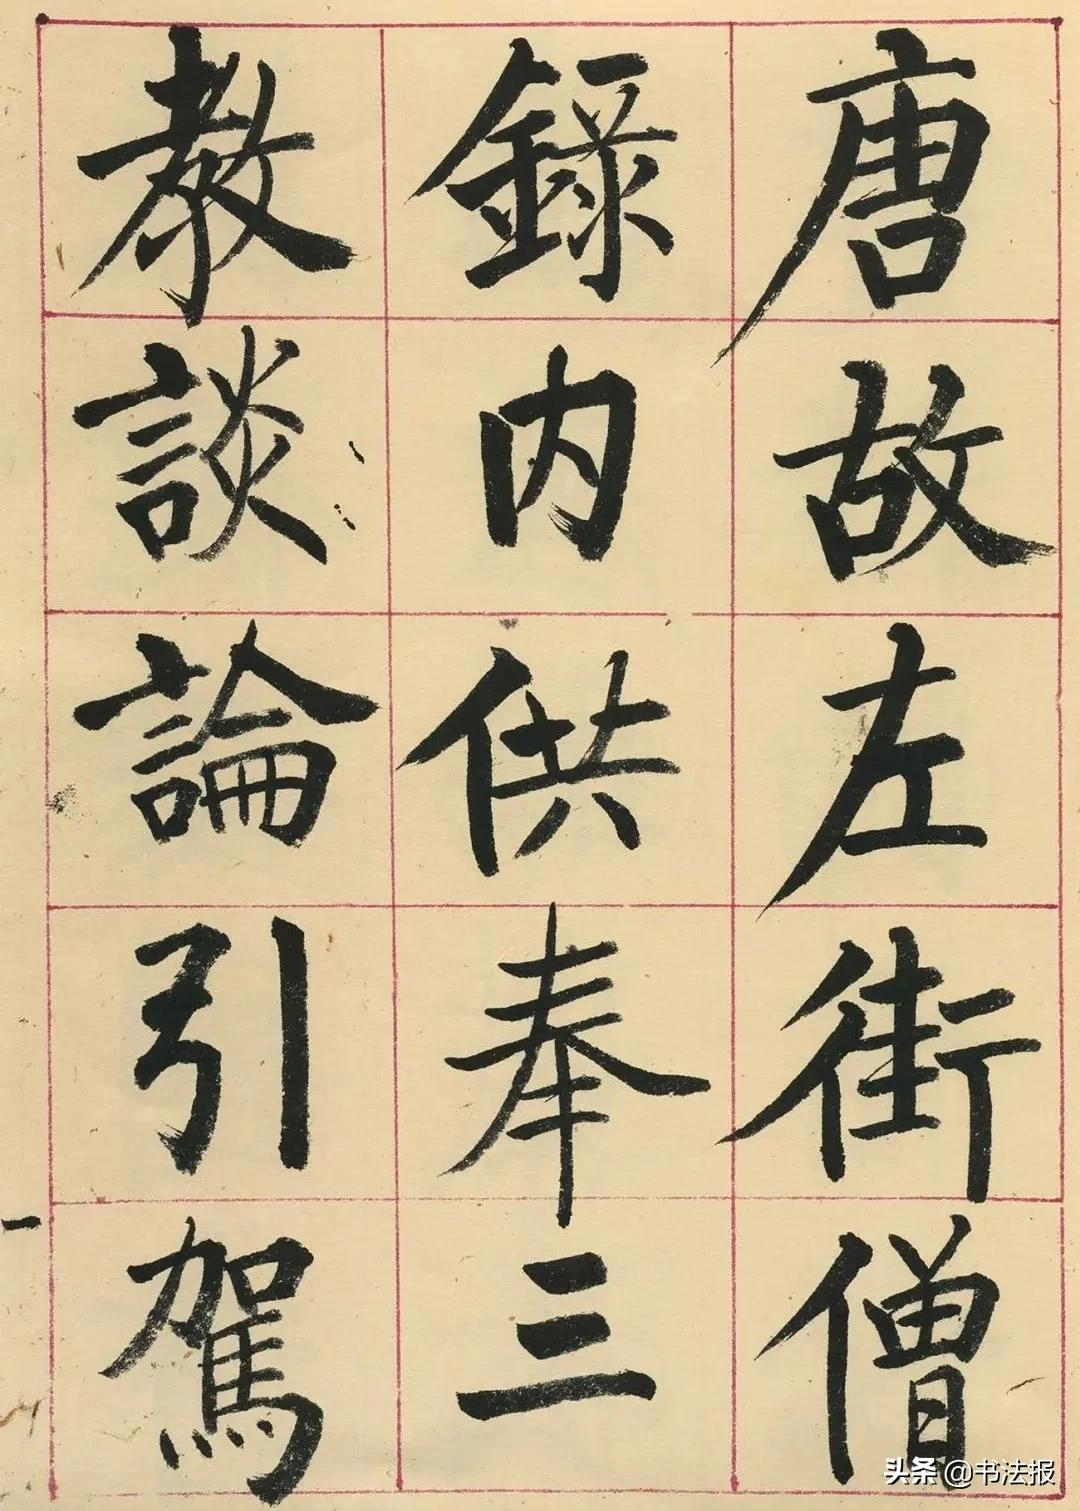 唐故左街僧
錄内供奉三
教談論引駕
头条 @书法报